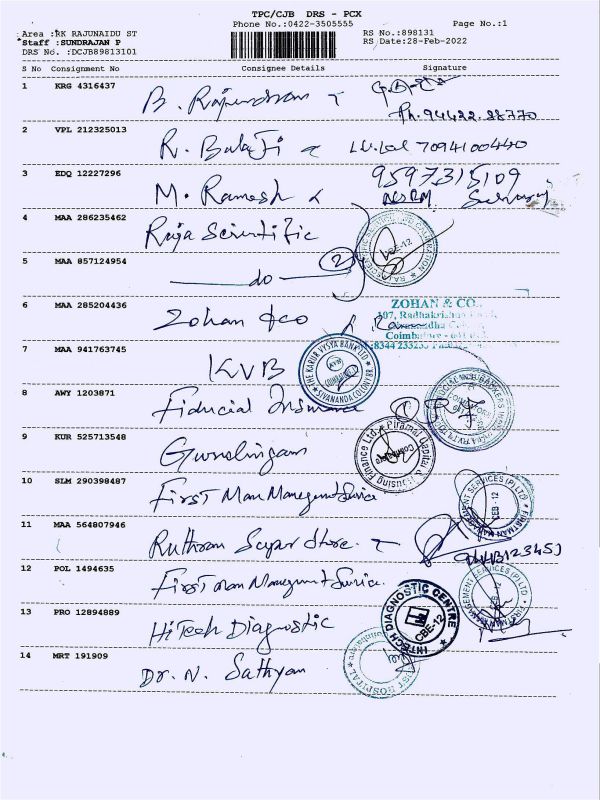 TPC/CJB DRS - PCX
Phone No.:0422-3505555
Page No.:1
Area :RK RAJUNAIDU ST
RS No.:898131
Staff :SUNDRAJAN P
RS Date:28-Feb-2022
DRS No. :DCJB89813101
S No Consignment No Consignee Details Signature
1 KRG 4316437
Ph. 94422.88770
2 VPL 212325013 R. Balaji 7094100440
3 EDQ 12227296 M. Ramesh 9597315109
4 MAA 286235462 Raja Scientific
5 MAA 857124954 do 2
6 MAA 285204436 Zohan &co
ZOHAN & CO.,
Coimbatore
7 MAA 941763745 KVB
THE KARUR VYSYA BANK LTD
SIVANANDA COLONY BR.
8 AWY 1203871 Fiducial Insurance
9 KUR 525713548 Gurulingam
Piramal Capital & Housing Finance Ltd
10 SLM 290398487 First Man Management Service
FIRSTMAN MANAGEMENT SERVICES (P) LTD
CBE-12
11 MAA 564807946 Ruthram Super Store
12 POL 1494635 First Man Management Service
13 PRO 12894889 HiTech Diagnostic
HITECH DIAGNOSTIC CENTRE
CBE-12
14 MRT 191909 Dr. N. Sathyan
HOSPITAL